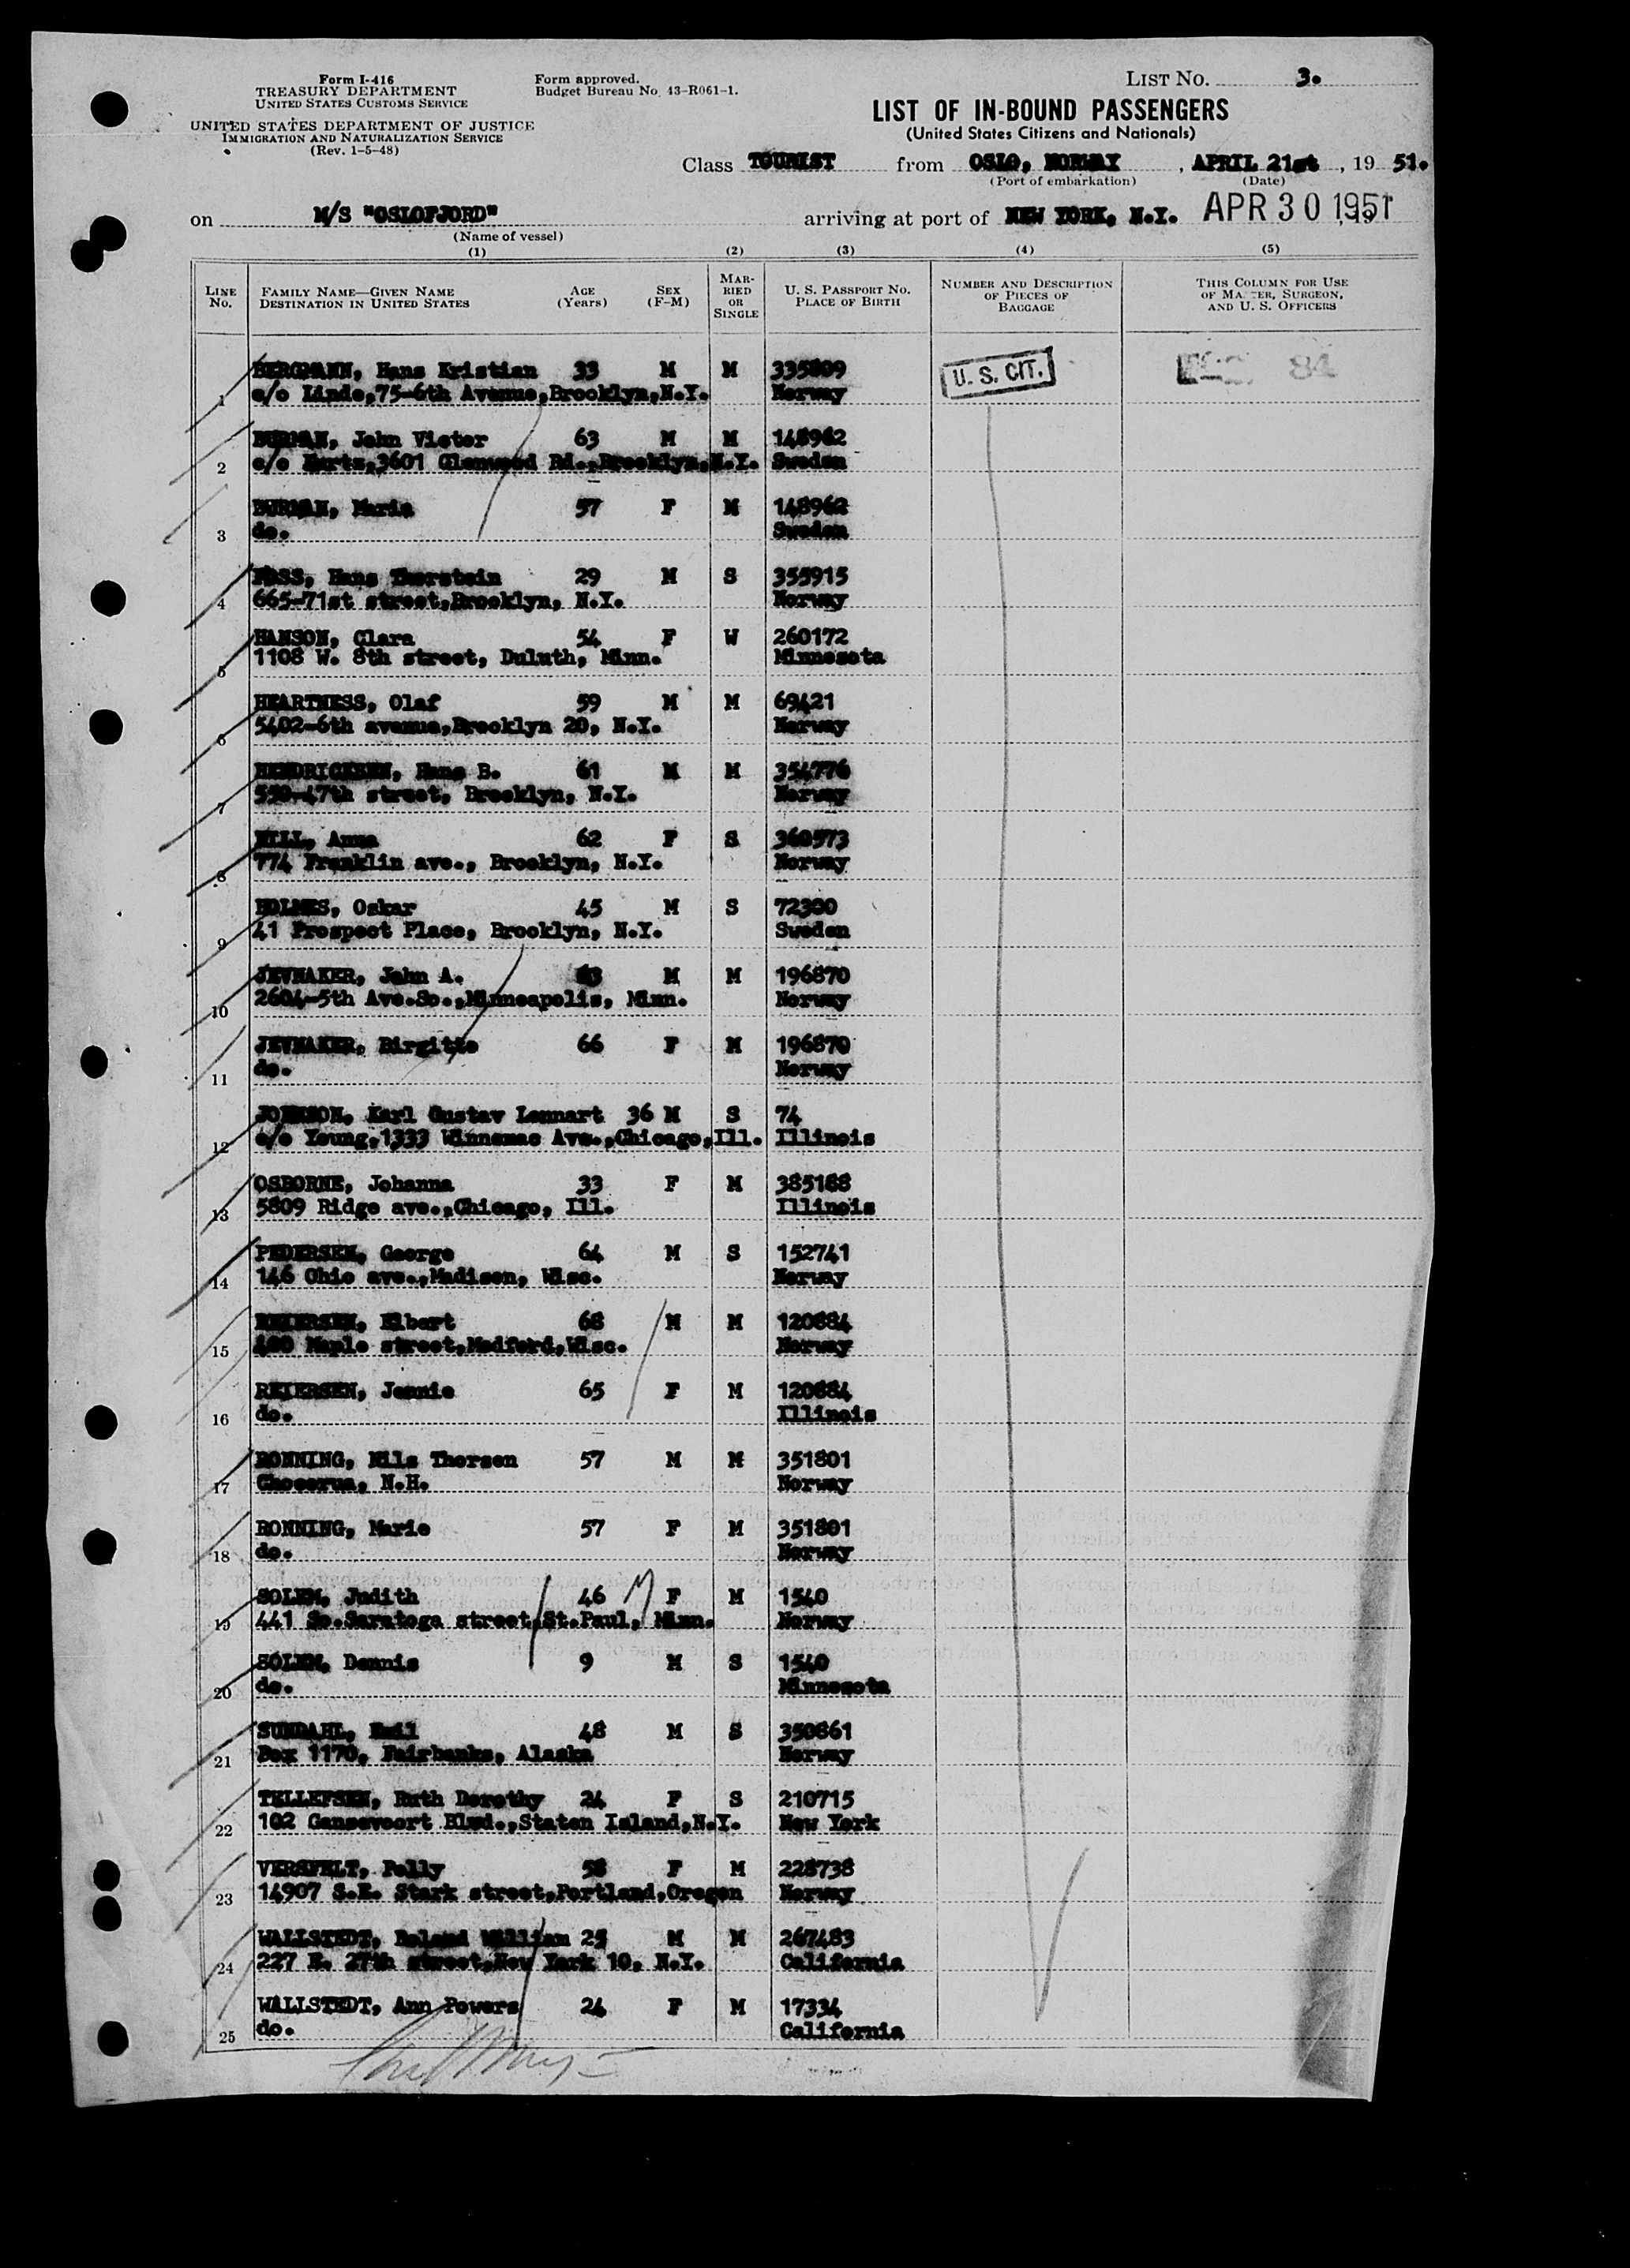 Form I-416
TREASURY DEPARTMENT
UNITED STATES CUSTOMS SERVICE
UNITED STATES DEPARTMENT OF JUSTICE
IMMIGRATION AND NATURALIZATION SERVICE
(Rev. 1-5-48)
Form approved.
Budget Bureau No. 43-R061-1.
LIST NO. 3.
LIST OF IN-BOUND PASSENGERS
(United States Citizens and Nationals)
Class TOURIST from OSLO, NORWAY, APRIL 21st, 19 51.
(Port of embarkation) (Date)
on M/S "OSLOFJORD" arriving at port of NEW YORK, N.Y. APR 30 1951
(Name of vessel)
(1) (2) (3) (4) (5)
LINE No. FAMILY NAME—GIVEN NAME DESTINATION IN UNITED STATES AGE (Years) SEX (F-M) MARRIED OR SINGLE U. S. PASSPORT NO. PLACE OF BIRTH NUMBER AND DESCRIPTION OF PIECES OF BAGGAGE THIS COLUMN FOR USE OF MASTER, SURGEON, AND U. S. OFFICERS
BERGMANN, Hans Kristian 33 M M 335809 U. S. CIT. 84
1 c/o Linde,75-6th Avenue,Brooklyn,N.Y. Norway
BURMAN, John Victor 63 M M 148962
2 c/o Hartz,3601 Glenwood Rd.,Brooklyn,N.Y. Sweden
BURMAN, Maria 57 F M 148962
3 do. Sweden
FOSS, Hans Thorstein 29 M S 355915
4 665-71st street,Brooklyn, N.Y. Norway
HANSON, Clara 54 F W 260172
5 1108 W. 8th street, Duluth, Minn. Minnesota
HEARTNESS, Olaf 59 M M 69421
6 5402-6th avenue,Brooklyn 20, N.Y. Norway
HENDRICKSEN, Hans B. 61 M M 354776
7 550-47th street, Brooklyn, N.Y. Norway
HILL, Anna 62 F S 360573
8 774 Franklin ave., Brooklyn, N.Y. Norway
HOLMES, Oskar 45 M S 72300
9 41 Prospect Place, Brooklyn, N.Y. Sweden
JEVNAKER, John A. M M 196870
10 2604-5th Ave.So.,Minneapolis, Minn. Norway
JEVNAKER, Birgitte 66 F M 196870
11 do. Norway
JOHNSON, Karl Gustav Lennart 36 M S 74
12 c/o Young,1333 Winnemac Ave.,Chicago,Ill. Illinois
OSBORNE, Johanna 33 F M 385188
13 5809 Ridge ave.,Chicago, Ill. Illinois
PEDERSEN, George 64 M S 152741
14 146 Ohio ave.,Madison, Wisc. Norway
REIERSEN, Elbert 68 M M 120884
15 Maple street,Medford,Wisc. Norway
REIERSEN, Jennie 65 F M 120884
16 do. Illinois
RONNING, Nils Thorsen 57 M M 351801
17 Chocorua, N.H. Norway
RONNING, Marie 57 F M 351801
18 do. Norway
SOLEM, Judith 46 F M 1540
19 441 So.Saratoga street,St.Paul, Minn. Norway
SOLEM, Dennis 9 M S 1540
20 do. Minnesota
SUNDAHL, Emil 48 M S 350861
21 Box 1170, Fairbanks, Alaska Norway
TELLEFSEN, Ruth Dorothy 24 F S 210715
22 102 Gansevoort Blvd.,Staten Island,N.Y. New York
VERSVELT, Polly 58 F M 228738
23 14907 S.E. Stark street,Portland,Oregon Norway
WALLSTEDT, Roland William 25 M M 267483
24 227 E. 27th street,New York 10, N.Y. California
WALLSTEDT, Ann Powers 24 F M 17334
25 do. California